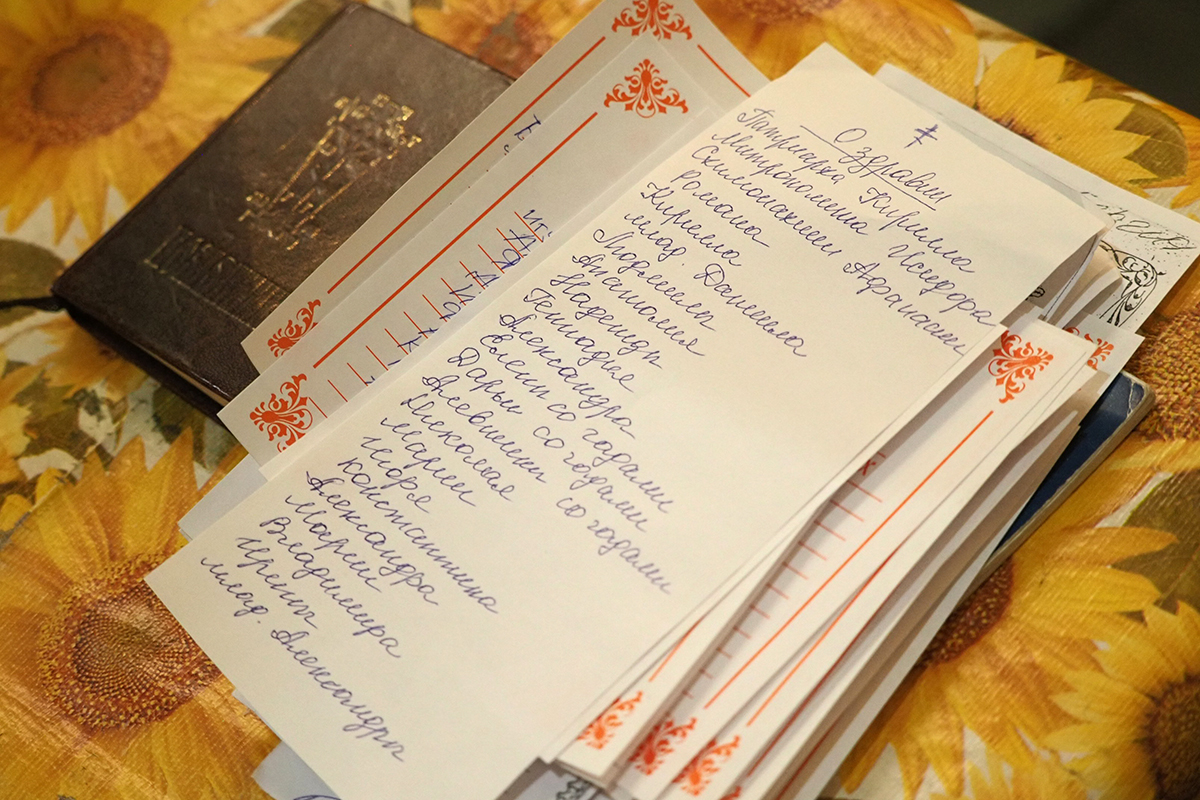 О здравии
Патриарха Кирилла
Митрополита Исидора
Схимонахини Афанасии
Романа
Кирилла
млад. Даниила
Людмилы
Анатолия
Надежды
Геннадия
Александра
Елены со чадами
Дарьи со чадами
Ангелины со чадами
Николая
Марии
Игоря
Константина
Александра
Марии
Владимира
Ирины
млад. Александры